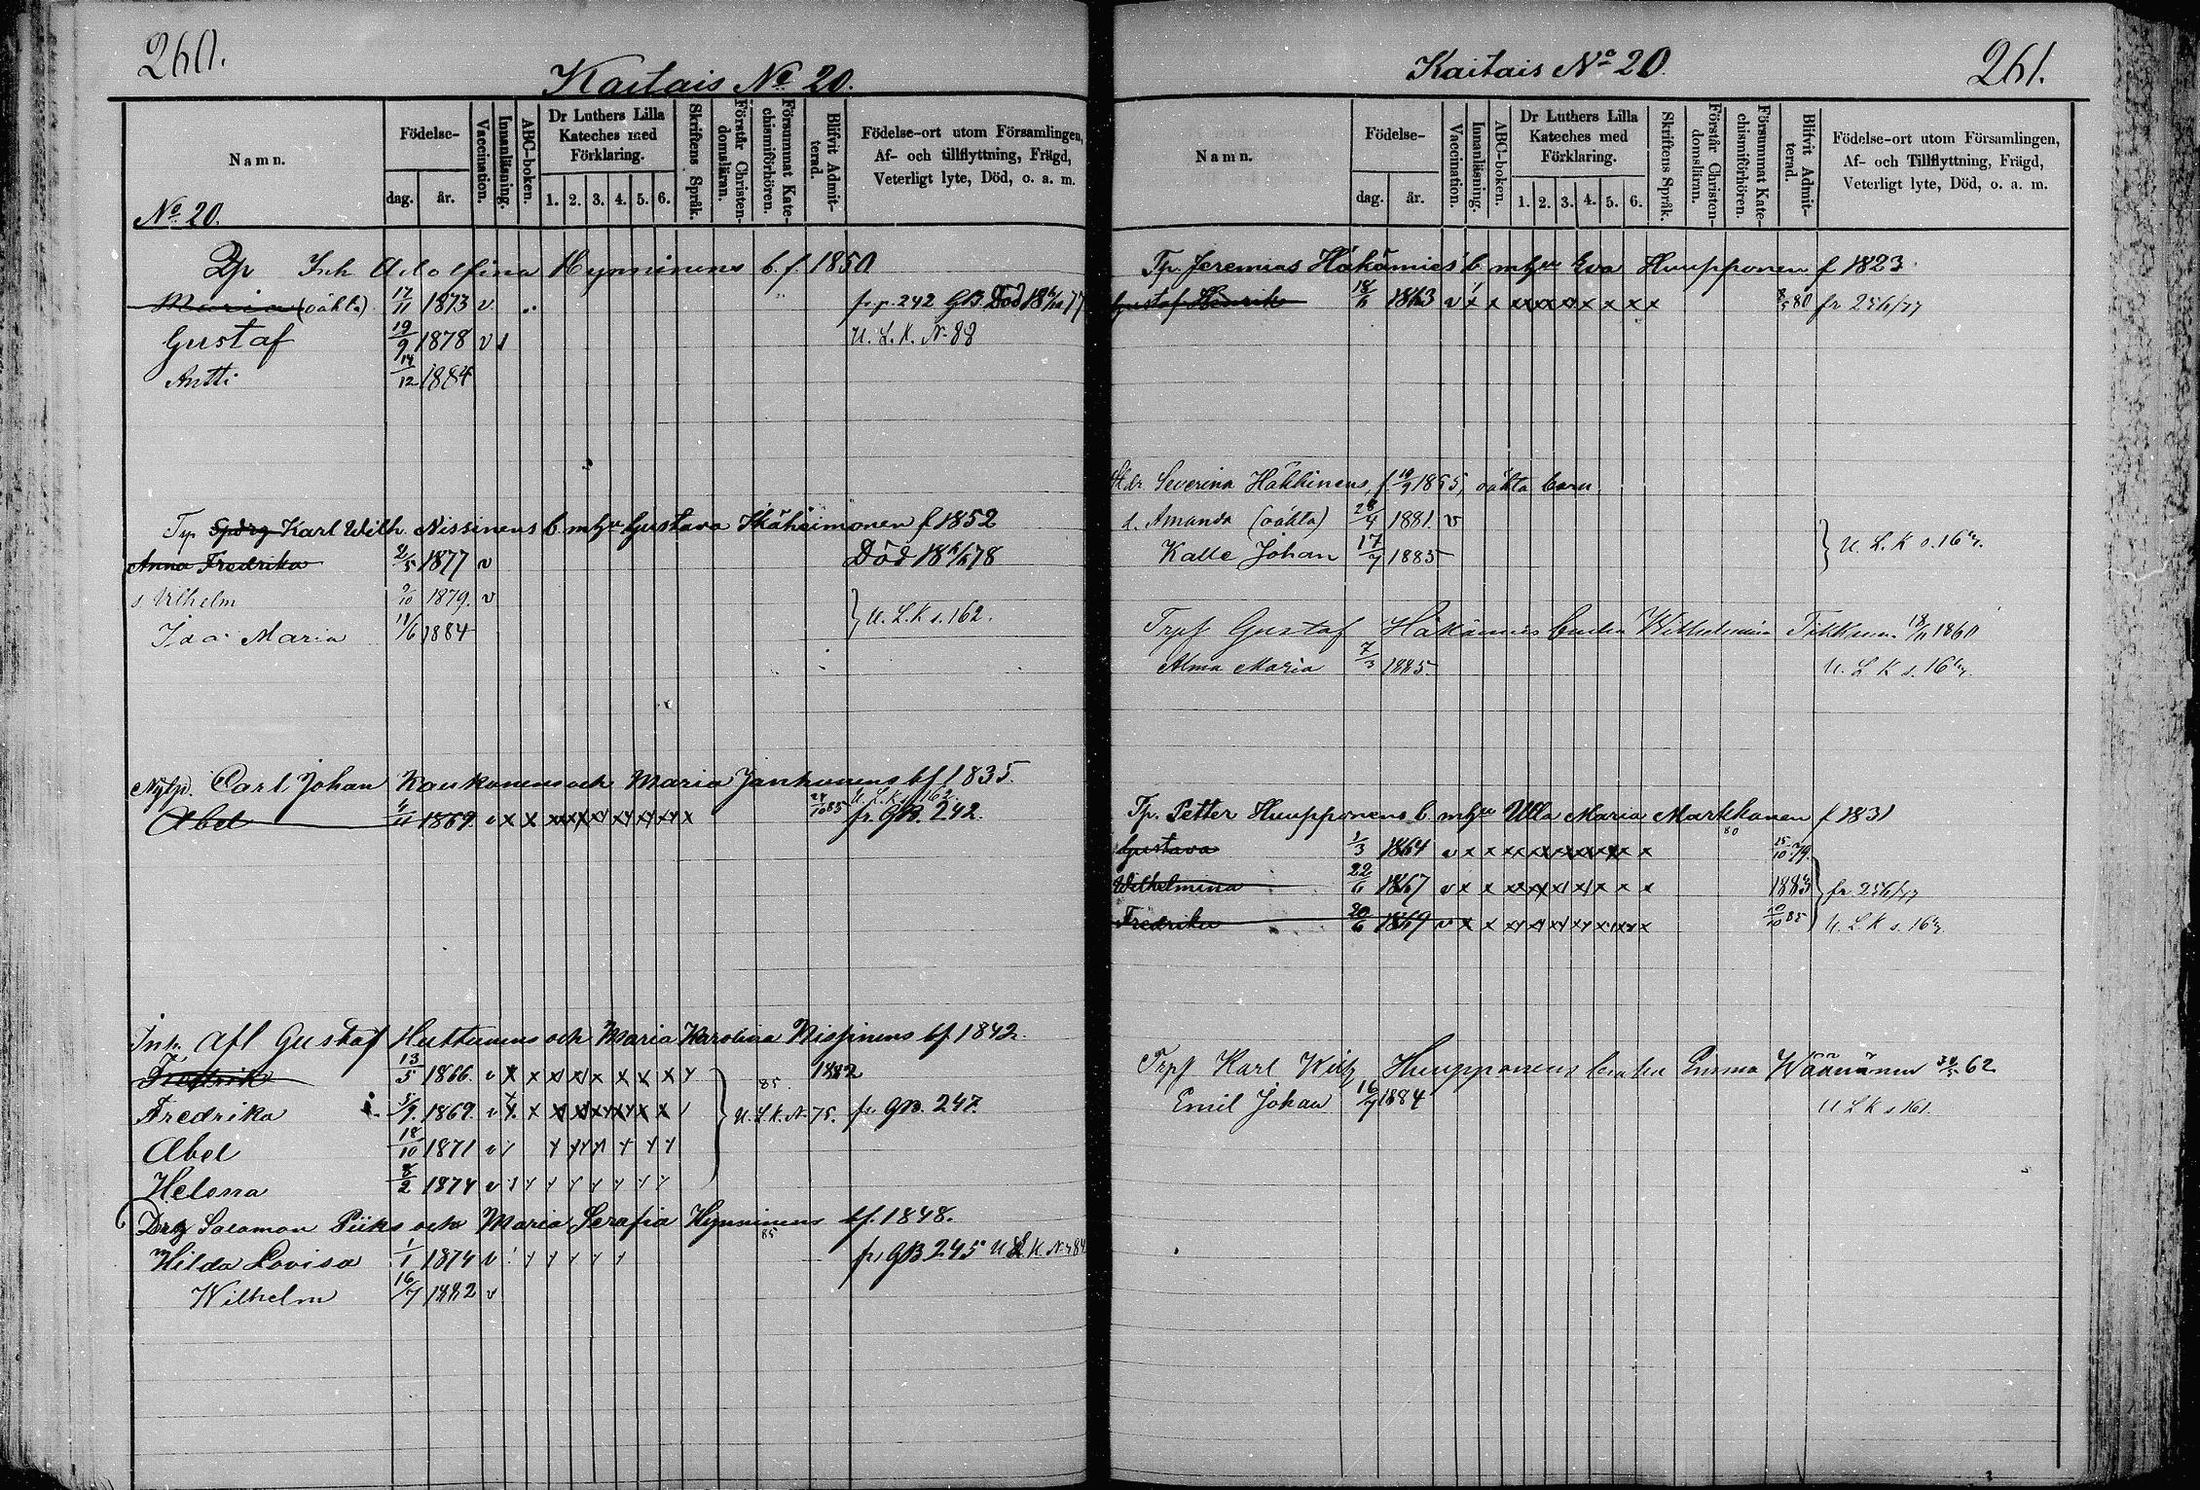 260.
Kaitais No 20.
Namn.
Födelse-
dag.
år.
Vaccination.
Innanläsning.
ABC-boken.
Dr Luthers Lilla Kateches med Förklaring.
1. 2. 3. 4. 5. 6.
Skriftens Språk.
Förstår Christendomsläran.
Försummat Katechismiförhören.
Blifvit Admitterad.
Födelse-ort utom Församlingen, Af- och tillflyttning, Frägd, Veterligt lyte, Död, o. a. m.
No 20.
Inh Adolfina Hynninens b. f. 1850
Maria (oäkta) 17/11 1873 v. fr. p. 242 GB. Död
Gustaf 19/9 1878 v U. L. K. N. 88
Antti 14/12 1884
Tp Karl Wilh. Nissinens b. m hu Gustava f 1852
Anna Fredrika 1877 v Död
s. Vilhelm 9/10 1879. v
Ida Maria 11/6 1884 } U. L. K s. 162.
Carl Johan Kaukonens och Maria Janhunens bf 1835.
Abel 1869. v x x 85 U. L. K. s. 162. fr. GB. 242.
Inh. Afl Gustaf Huttunens och Maria Karolina Nissinens bf. 1842.
Fredrik 13/5 1866. v x x 1882
Fredrika 1869. v x x 85. U. L. K. N. 75. fr. GB. 247.
Abel 18/10 1871 v
Helena 8/2 1874 v
Drg Salomon Piiks och Maria Serafia Hynninens bf. 1848.
Hilda Lovisa 1/1 1874 v 85 fr. GB 245 U. L. K. N.
Wilhelm 16/7 1882 v
Kaitais No 20.
261.
Namn.
Födelse-
dag.
år.
Vaccination.
Innanläsning.
ABC-boken.
Dr Luthers Lilla Kateches med Förklaring.
1. 2. 3. 4. 5. 6.
Skriftens Språk.
Förstår Christendomsläran.
Försummat Katechismiförhören.
Blifvit Admitterad.
Födelse-ort utom Församlingen, Af- och Tillflyttning, Frägd, Veterligt lyte, Död, o. a. m.
Tp. Jeremias Häkämies b. m hu Eva Huupponen f 1823
Gustaf Henrik 18/6 1863 v x x 80 fr 256/77
Severina Häkkinens, f. 1865, oäkta barn
d. Amanda (oäkta) 28/4 1881. v
Kalle Johan 17/7 1885 } U. L. K s. 162.
Gustaf Häkämies Wilhelmina Tikkunen 1860
Alma Maria 7/3 1885. U. L K s. 162.
Tp. Petter Huupponens b. m hu Ulla Maria Markkanen f 1831
Gustava 1/3 1864 v x x 80 15/10 79.
Wilhelmina 22/6 1867 v x x 1883 } fr. 256/77
Fredrika 20/6 1869 v x x 85 U. L K s. 162.
Karl Huupponens Emma Väänänen 62
Emil Johan 16/7 1884 U L K s. 161.